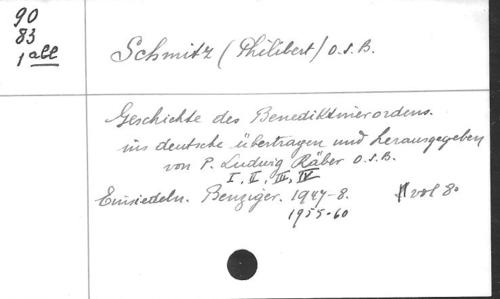 90
83
1 abl
Schmitz (Philibert) O.S.B.
Geschichte des Benediktinerordens.
ins deutsche übertragen und herausgegeben
von P. Ludwig Räber O.S.B.
I, II, III, IV
Einsiedeln. Benziger. 1947-8. vol 8o
1955-60